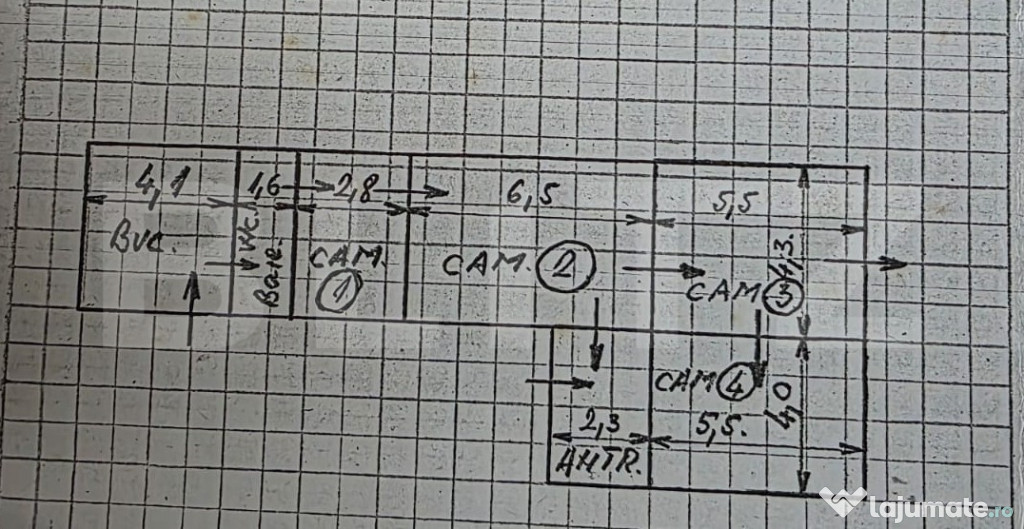 4,1 1,6 2,8 6,5 5,5
BUC. WC. Baie. CAM. 1 CAM. 2 CAM 3 4,3.
CAM 4 4,0
2,3 5,5.
ANTR.
lajumate.ro